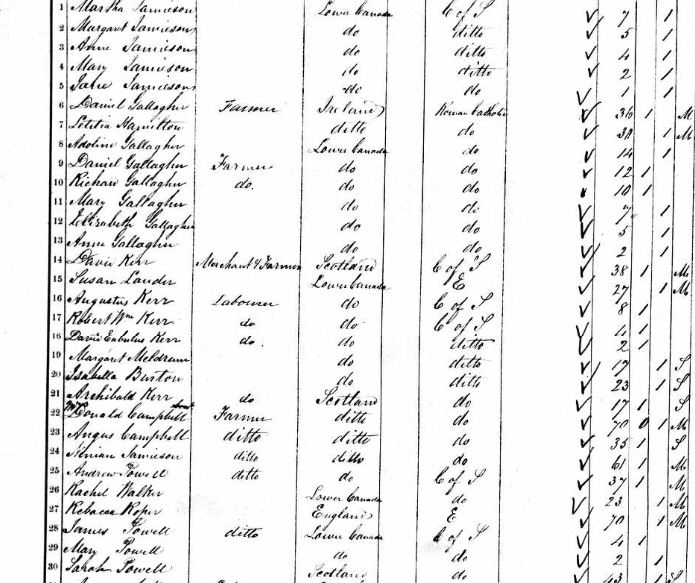 1 Martha Jamieson Lower Canada C of S 7 1
2 Margaret Jamieson do ditto 5 1
3 Anne Jamieson do ditto 4 1
4 Mary Jamieson do ditto 2 1
5 Jane Jamieson do do 1 1
6 Daniel Gallagher Farmer Ireland Roman Catholic 36 1 M
7 Letitia Hamilton ditto do 38 1 M
8 Adoline Gallagher Lower Canada do 14 1
9 Daniel Gallagher Farmer do do 12 1
10 Richard Gallagher do. do do 10 1
11 Mary Gallagher do do 7 1
12 Elizabeth Gallagher do do 5 1
13 Anne Gallagher do do 2 1
14 David Kerr Merchant & Farmer Scotland C of S 38 1 M
15 Susan Lauder Lower Canada E 27 1 M
16 Augustus Kerr Labourer do C of S 8 1
17 Robert Wm Kerr do do C of S 4 1
18 David Eubulus Kerr do. do ditto 2 1
19 Margaret Meldrum do ditto 17 1 S
20 Isabella Burton do ditto 23 1 S
21 Archibald Kerr do Scotland do 17 1 S
22 Donald Campbell Farmer ditto do 70 0 1 M
23 Angus Campbell ditto ditto do 35 1 S
24 Ninian Jamieson ditto ditto do 61 1 M
25 Andrew Powell ditto do C of S 37 1 M
26 Rachel Walker Lower Canada do 23 1 M
27 Rebecca Roper England E 70 1 M
28 James Powell ditto Lower Canada C of S 4 1
29 Mary Powell do do 2 1
30 Sarah Powell Scotland do 43 1 S